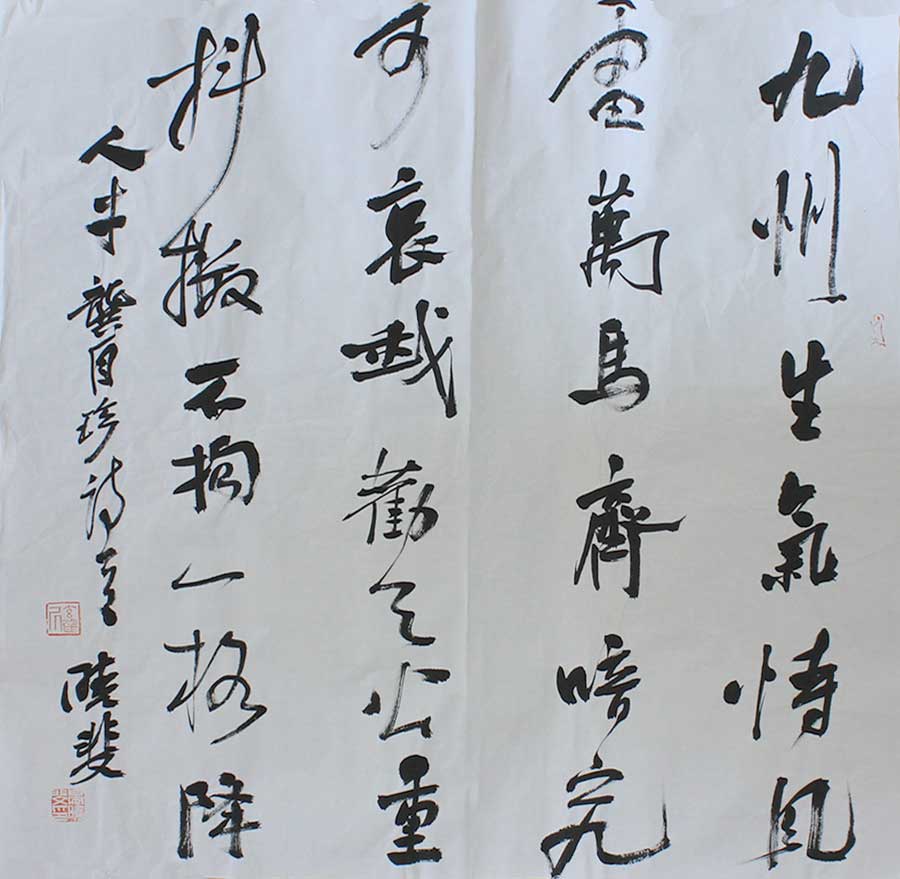 九州生氣恃風
雷萬馬齊喑究
可哀我勸天公重
抖擻不拘一格降
人才 龔自珍詩一首